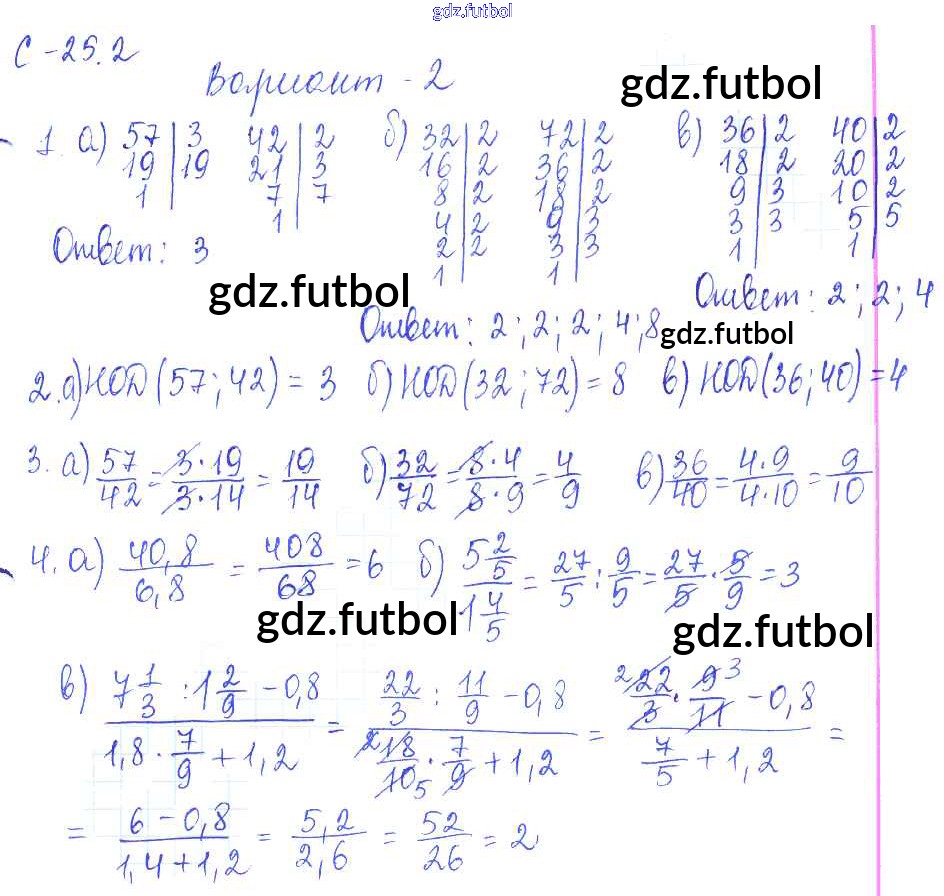 gdz.futbol
С-25.2
Вариант-2 gdz.futbol
1. а) 57 | 3   42 | 2   б) 32 | 2   72 | 2   в) 36 | 2   40 | 2
19 | 19   21 | 3   16 | 2   36 | 2   18 | 2   20 | 2
1   7 | 7   8 | 2   18 | 2   9 | 3   10 | 2
1   4 | 2   9 | 3   3 | 3   5 | 5
2 | 2   3 | 3   1   1
1   1
Ответ: 3
gdz.futbol
Ответ: 2; 2; 4
Ответ: 2; 2; 2; 4; 8
gdz.futbol
2. а) НОД(57; 42) = 3 б) НОД(32; 72) = 8 в) НОД(36; 40) = 4
3. а) 57/42 = 3·19/3·14 = 19/14 б) 32/72 = 8·4/8·9 = 4/9 в) 36/40 = 4·9/4·10 = 9/10
4. а) 40,8/6,8 = 408/68 = 6 б) 5 2/5 / 1 4/5 = 27/5 : 9/5 = 27/5 · 5/9 = 3
gdz.futbol gdz.futbol
в) (7 1/3 : 1 2/9 - 0,8)/(1,8 · 7/9 + 1,2) = (22/3 : 11/9 - 0,8)/(2 18/10 5 · 7/9 + 1,2) = (2 22/3 · 9 3/11 - 0,8)/(7/5 + 1,2) =
= (6 - 0,8)/(1,4 + 1,2) = 5,2/2,6 = 52/26 = 2